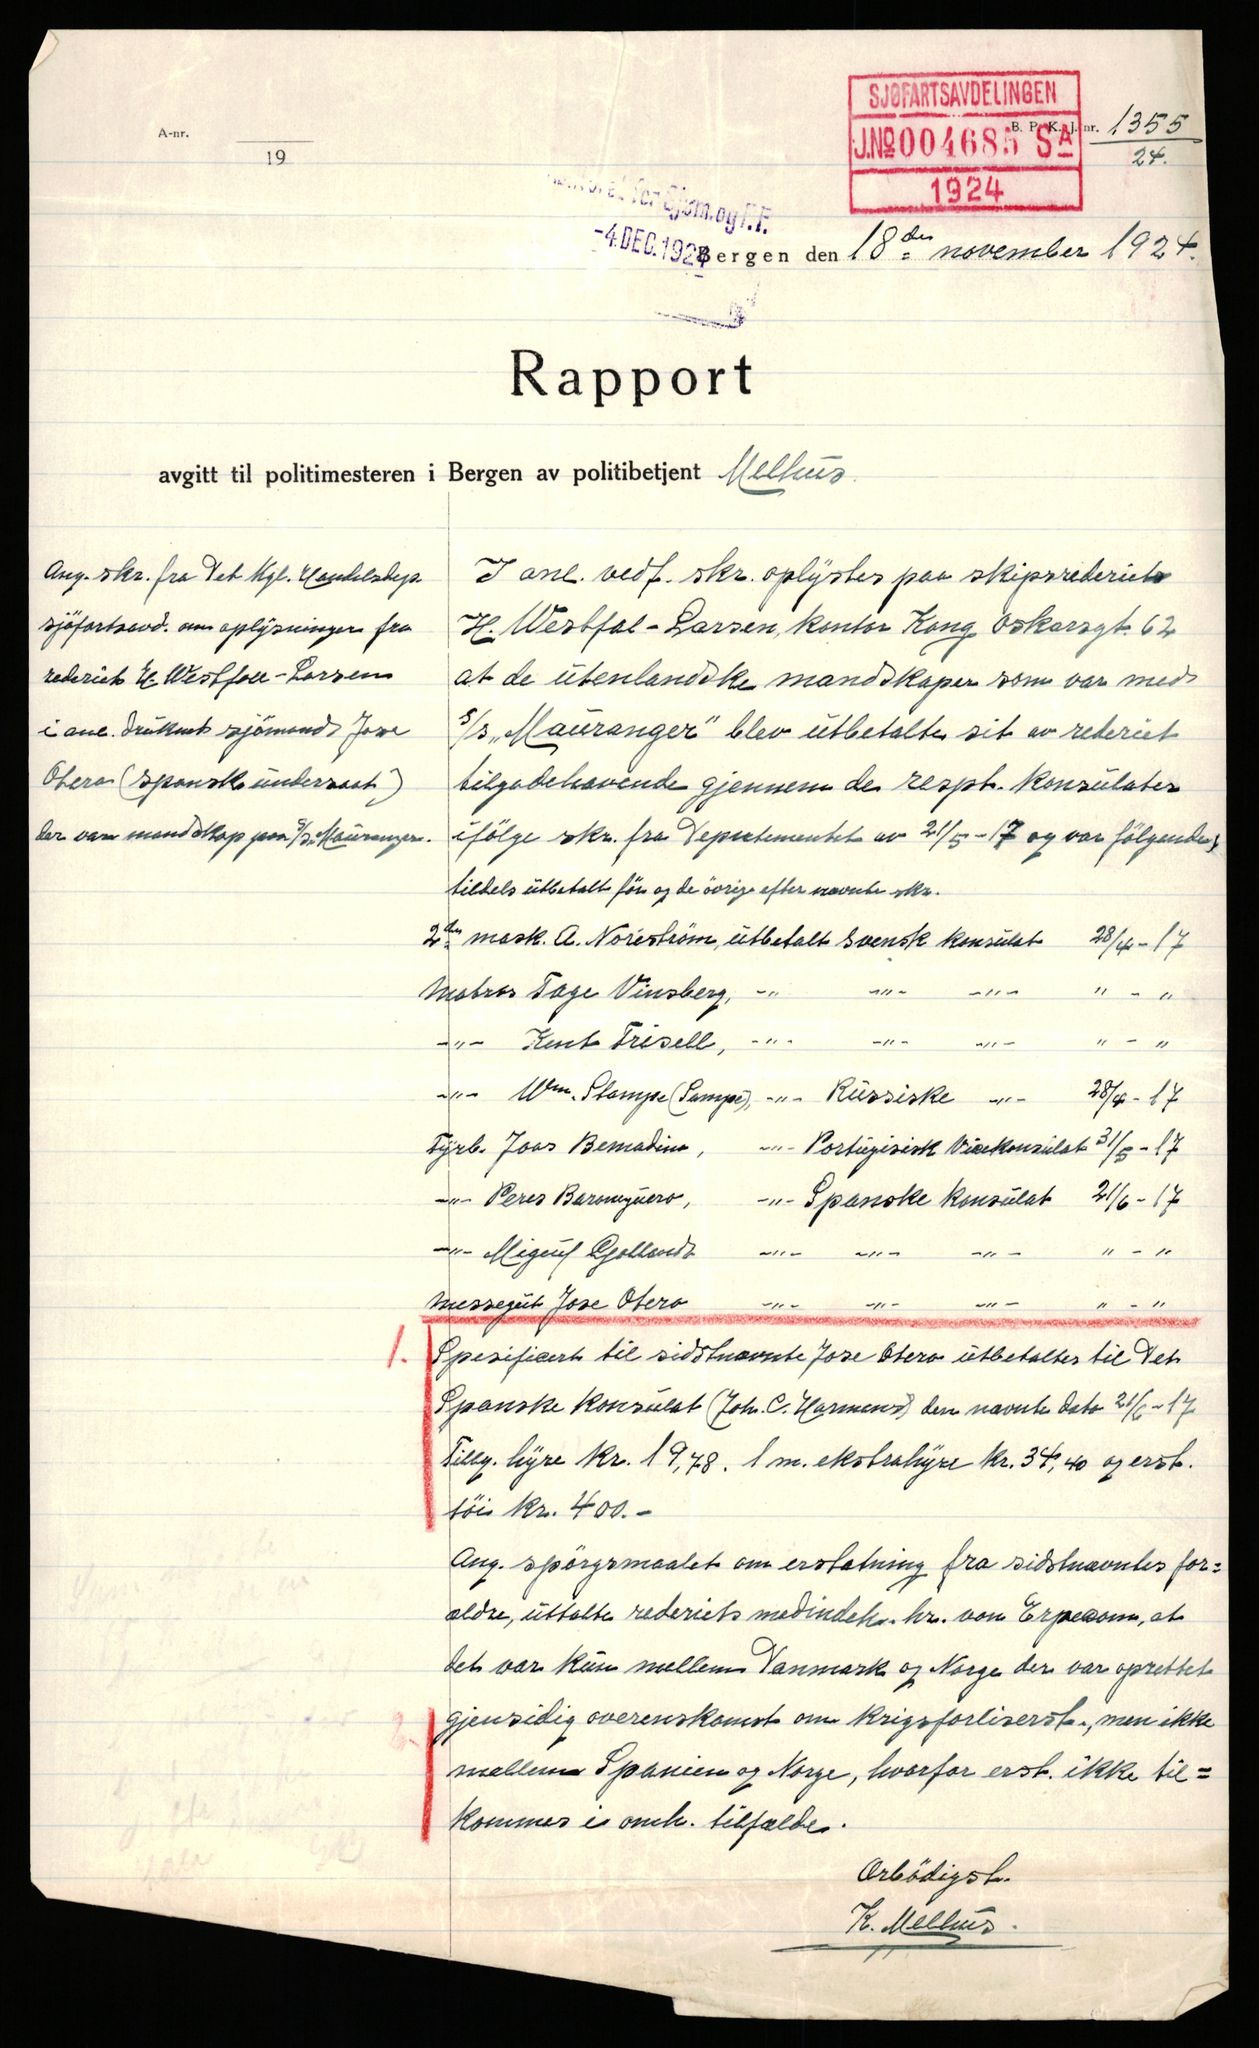 SJØFARTSAVDELINGEN
J.Nº 004685 SA
1924
A-nr.
19
B. P. K. J. nr. 1355
24.
for Sjøm. og F.F.
-4.DEC.1924
Bergen den 18den november 1924.
Rapport
avgitt til politimesteren i Bergen av politibetjent Melhus.
Ang. skr. fra Det Kgl. Handelsdep.
sjöfartsavd. om oplysninger fra
rederiet H. Westfal-Larsen
i anl. druknet sjömand Jose
Otero (spansk undersaat)
der var mandskap paa S/S „Mauranger.
I anl. vedf. skr. oplystes paa skipsrederiet
H. Westfal-Larsen, kontor Kong Oskarsgt. 62
at de utenlandske mandskaper som var med
S/S „Mauranger" blev utbetalte sit av rederiet
tilgodehavende gjennem de respt. konsulater
ifölge skr. fra Departementet av 21/5-17 og var fölgende
tildels utbetalt för og de övrige efter nævnte skr.
2den mask. A. Norström, utbetalt Svensk konsulat 28/4-17
Matros Tage Vinsberg, -"- -"- -"- " - "
-"- Kent Trisell, -"- -"- -"- " - "
-"- Wm. Stampe (Sampe), -"- Russiske -"- 28/4-17
Fyrb. Joas Bernadino, -"- Portugisisk Vicekonsulat 31/5-17
-"- Peres Barmeguero, -"- Spanske konsulat 21/6-17
-"- Miguel Gollando -"- -"- -"- " - "
Messegut Jose Otero -"- -"- -"- " - "
1. Spesificert til sidstnævnte Jose Otero utbetaltes til Det
Spanske konsulat (Joh. C. Harmens) den nævnte dato 21/6-17
Tillg. hyre kr. 19,78. 1 m. ekstrahyre kr. 34,40 og erst.
töi kr. 400.-
Ang. spörgsmaalet om erstatning fra sidstnævntes for=
ældre, uttalte rederiets medindeh. hr. von Erpecom, at
det var kun mellem Danmark og Norge der var oprettet
gjensidig overenskomst om krigsforliserst., men ikke
mellem Spanien og Norge, hvorfor erst. ikke til=
kommes i omh. tilfælde.
Ærbödigst.
K. Melhus.